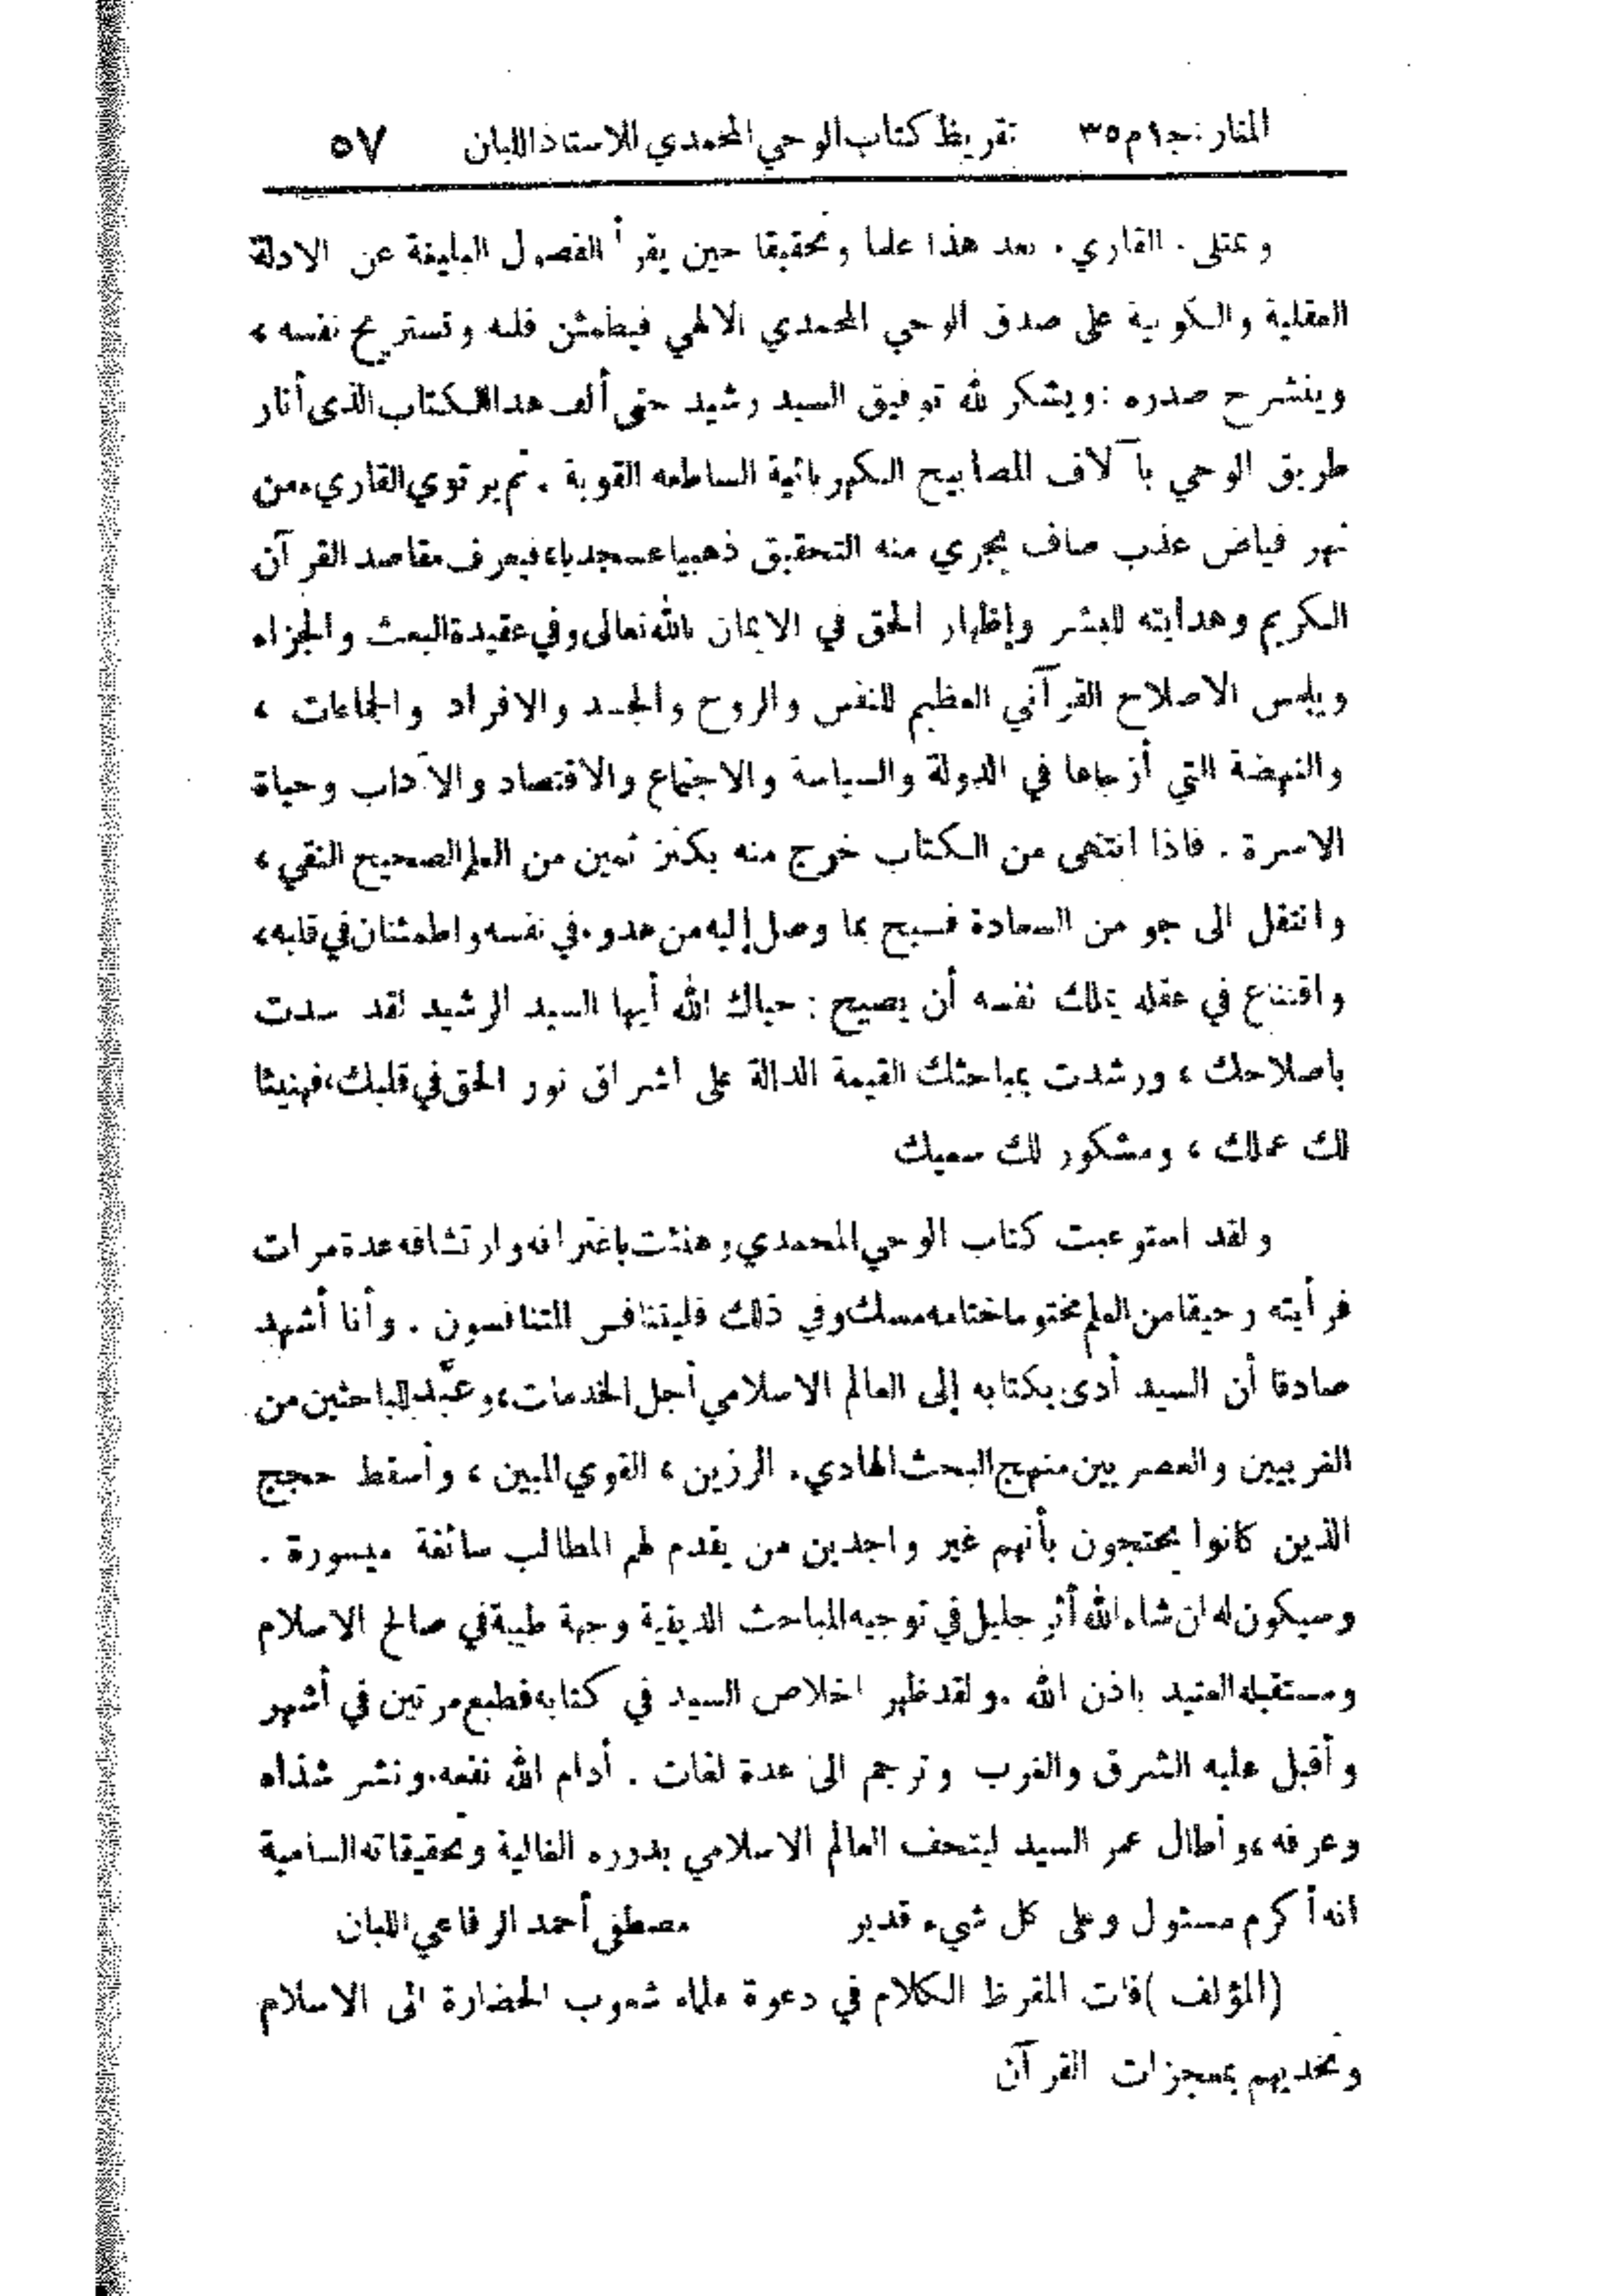 المنار : ج ١ م ٣٥ تقريظ كتاب الوحي المحمدي للاستاذ اللبان ٥٧
ويمتلىء القاريء بعد هذا علما وتحقيقا حين يقرأ الفصول البليغة عن الادلة
العقلية والكونية على صدق الوحي المحمدي الالهي فيطمئن قلبه وتستريح نفسه ،
وينشرح صدره : ويشكر لله توفيق السيد رشيد حتى ألف هذا الكتاب الذى أنار
طريق الوحي بآلاف المصابيح الكهربائية الساطعة القوية . ثم يرتوي القاريء من
نهر فياض عذب صاف يجري منه التحقيق ذهبيا عسجديا، فيعرف مقاصد القرآن
الكريم وهدايته للبشر وإظهار الحق في الايمان بالله تعالى وفي عقيدة البعث والجزاء
ويلمس الاصلاح القرآني العظيم للنفس والروح والجسد والافراد والجماعات ،
والنهضة التي أزجاها في الدولة والسياسة والاجتماع والاقتصاد والآداب وحياة
الاسرة . فاذا انتهى من الكتاب خرج منه بكنز ثمين من العلم الصحيح النقي ،
وانتقل الى جو من السعادة فسيح بما وصل إليه من هدوء في نفسه واطمئنان في قلبه،
واقتناع في عقله يملك نفسه أن يصيح : حياك الله أيها السيد الرشيد لقد سدت
باصلاحك ، ورشدت بمباحثك القيمة الدالة على اشراق نور الحق في قلبك، فهنيئا
لك عملك ، ومشكور لك سعيك
ولقد استوعبت كتاب الوحي المحمدي وهنئت باغترافه وارتشافه عدة مرات
فرأيته رحيقا من العلم مختوما ختامه مسك وفي ذلك فليتنافس المتنافسون . وأنا أشهد
صادقا أن السيد أدى بكتابه إلى العالم الاسلامي أجل الخدمات، وعبَّد للباحثين من
الغربيين والعصريين منهج البحث الهاديء الرزين ، القوي المبين ، وأسقط حجج
الذين كانوا يحتجون بأنهم غير واجدين من يقدم لهم المطالب سائغة ميسورة .
وسيكون له ان شاء الله أثر جليل في توجيه المباحث الدينية وجهة طيبة في صالح الاسلام
ومستقبله العتيد باذن الله . ولقد ظهر اخلاص السيد في كتابه فطبع مرتين في أشهر
وأقبل عليه الشرق والغرب وترجم الى عدة لغات . أدام الله نفعه، ونشر شذاه
وعرفه، وأطال عمر السيد ليتحف العالم الاسلامي بدرره الغالية وتحقيقاته السامية
انه أكرم مسئول وعلى كل شيء قدير مصطفى أحمد الرفاعي اللبان
(المؤلف) فات المقرظ الكلام في دعوة علماء شعوب الحضارة الى الاسلام
وتحديهم بمعجزات القرآن